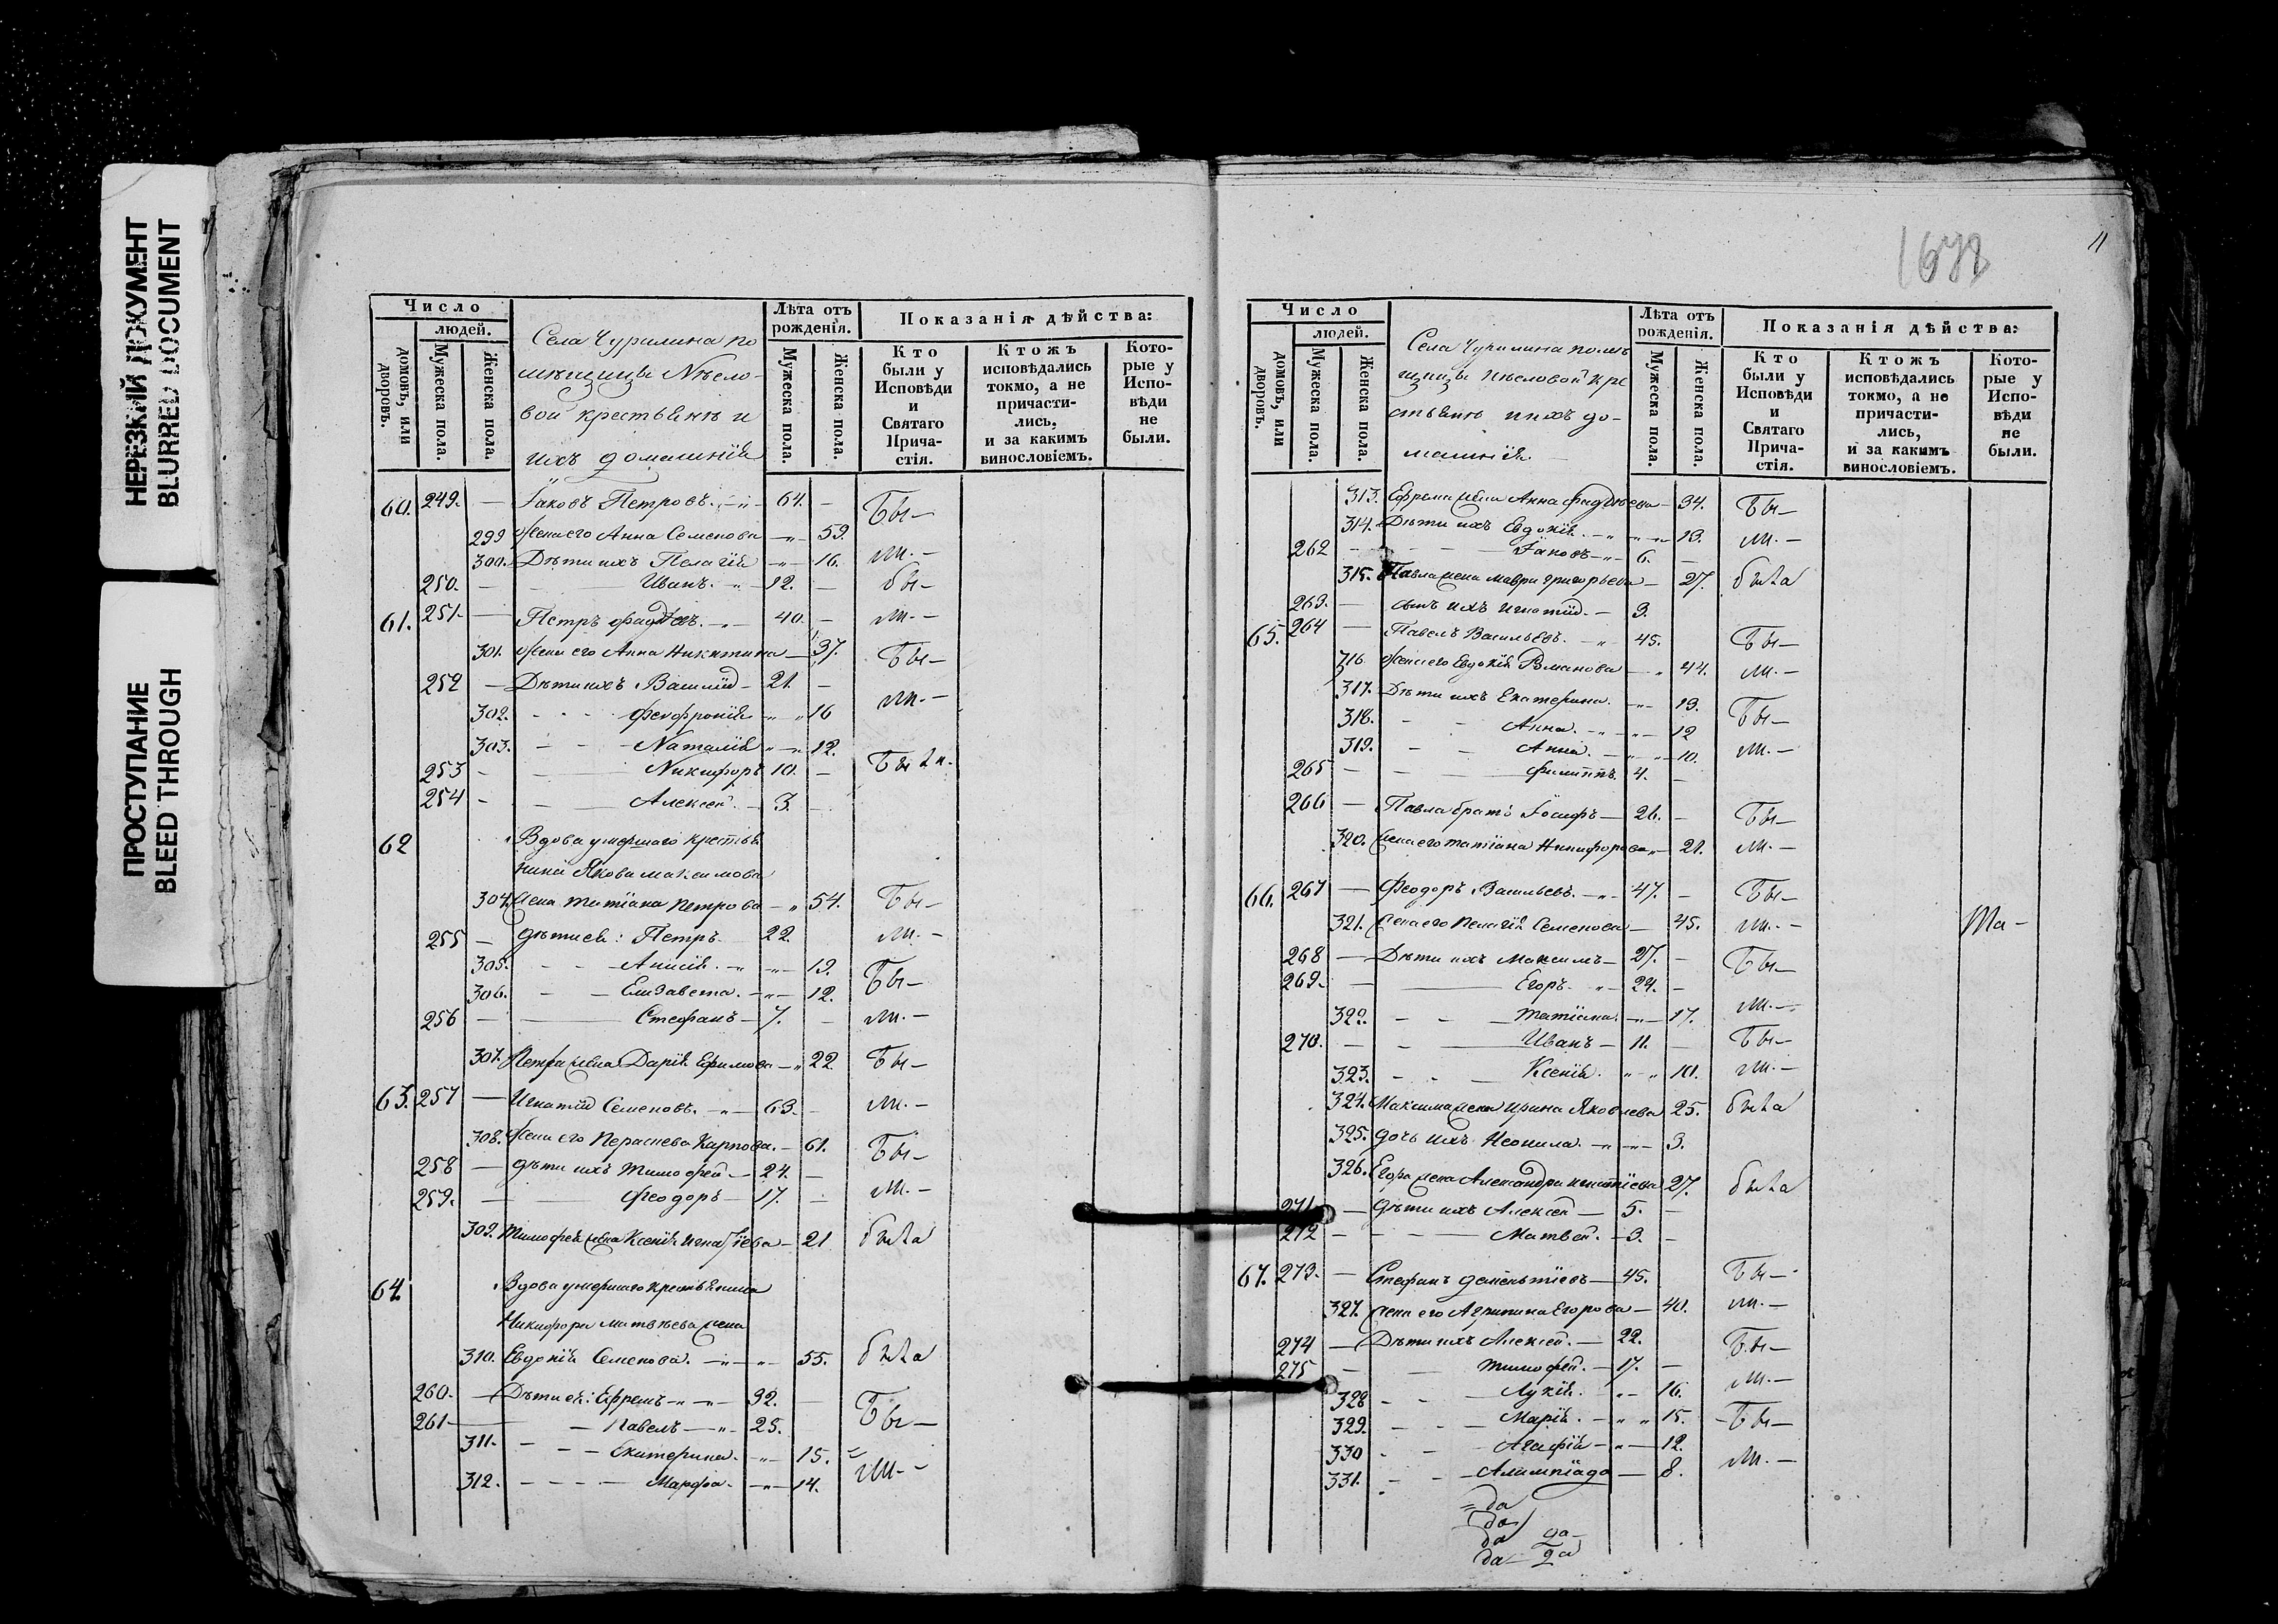 НЕРЕЗКИЙ ДОКУМЕНТ
BLURRED DOCUMENT
ПРОСТУПАНИЕ
BLEED THROUGH
Число
людей.
домовъ, или дворовъ.
Мужеска пола.
Женска пола.
Села Чурилина по
мѣщицы
вой крестьянѣ и
ихъ домашнія
Лѣта отъ рожденія.
Мужеска пола.
Женска пола.
Показанія дѣйства:
Кто были у Исповѣди и Святаго Прича-стія.
Ктожъ исповѣдались токмо, а не причасти-лись, и за какимъ винословіемъ.
Кото-рые у Испо-вѣди не были.
60. 249. — Іаковъ Петровъ. 64. — Бы—
299 Жена его Анна Семенова — 59.
300. Дѣти ихъ Пелагія — 16. ли. —
250. — Иванъ. 12. — бы—
61. 251. — Петръ Фадѣевъ. 40. — ли. —
301. Жена его Анна Никитина — 37. Бы—
252 — Дѣти ихъ Василій — 21. — ли. —
302. Феофронія 16
303. Наталія 12.
253 — Никифоръ 10. — Были.
254 — Алексей. — 3. —
62 Вдова умершаго крестья
нина Якова Максимова
304. жена Татіана Петрова — 54. Бы—
255 — дѣти ея: Петръ. 22. ли. —
305. Анисія. 19.
306. Елизавета. 12. Бы—
256 — Стефанъ — 7. — ли. —
307. Петра жена Дарія Ефимова — 22 Бы—
63. 257 — Игнатій Семеновъ. — 63. — ли. —
308. Жена его Параскева Карпова. — 61. Бы—
258 — дѣти ихъ Тимофей — 24. —
259. — Феодоръ — 17. — ли. —
309. Тимофея жена Ксенія Игнатіева — 21 была
64. Вдова умершаго крестьянина
Никифора Матвѣева жена
310. Евдокія Семенова. — 55. была
260. — Дѣти ея: Ефремъ — 32. —
261 — Павелъ — 25. Бы—
311. Екатерина. — 15.
312. Марфа. — 14. ли. —
11
Число
людей.
домовъ, или дворовъ.
Мужеска пола.
Женска пола.
Села Чурилина помѣ
щицы кре
стьянѣ и ихъ до-
машнія.
Лѣта отъ рожденія.
Мужеска пола.
Женска пола.
Показанія дѣйства:
Кто были у Исповѣди и Святаго Прича-стія.
Ктожъ исповѣдались токмо, а не причасти-лись, и за какимъ винословіемъ.
Кото-рые у Испо-вѣди не были.
313. Ефрема жена Анна Фадѣева — 34. Бы—
314. Дѣти ихъ Евдокія. 13. ли. —
262 — Іаковъ — 6. —
315. Павла жена Мавра Григорьева — 27. была
263. — сынъ ихъ Игнатій. — 3.
65. 264 — Павелъ Васильевъ. 45. Бы—
316 Жена его Евдокія Романова — 44. ли. —
317. Дѣти ихъ Екатерина. 19.
318. Анна. 12 Бы—
319. Анна. 10. ли. —
265 — Филиппъ. 4. —
266 — Павла братъ Іосифъ — 26. — Бы—
320. Жена его Татіана Никифорова — 21. ли. —
66. 267 — Феодоръ Васильевъ. 47. — Бы—
321. Жена его Пелагія Семенова — 45. ли. —
268 — Дѣти ихъ Максимъ — 27. — Бы—
269. — Егоръ. 24. —
322. Татіана. 17. ли. —
270. — Иванъ — 11. — Бы—
323. Ксенія. 10. ли. —
324. Максима жена Ирина Яковлева 25. была
325. дочь ихъ Неонила. 3.
326. Егора жена Александра Игнатіева 27. была
271 — дѣти ихъ Алексей — 5. —
272 — Матвей. — 3. —
67. 273. — Стефанъ — 45. Бы—
327. жена его Агрипина Егорова — 40. ли. —
274 — Дѣти ихъ Алексей. — 22. Бы—
275 — Тимофей. — 17. —
328 Лукія. 16. ли. —
329. Марія. 15. Бы—
330 Агафія — 12.
331. Алимпіада — 8. ли. —
да
да
да да
да да